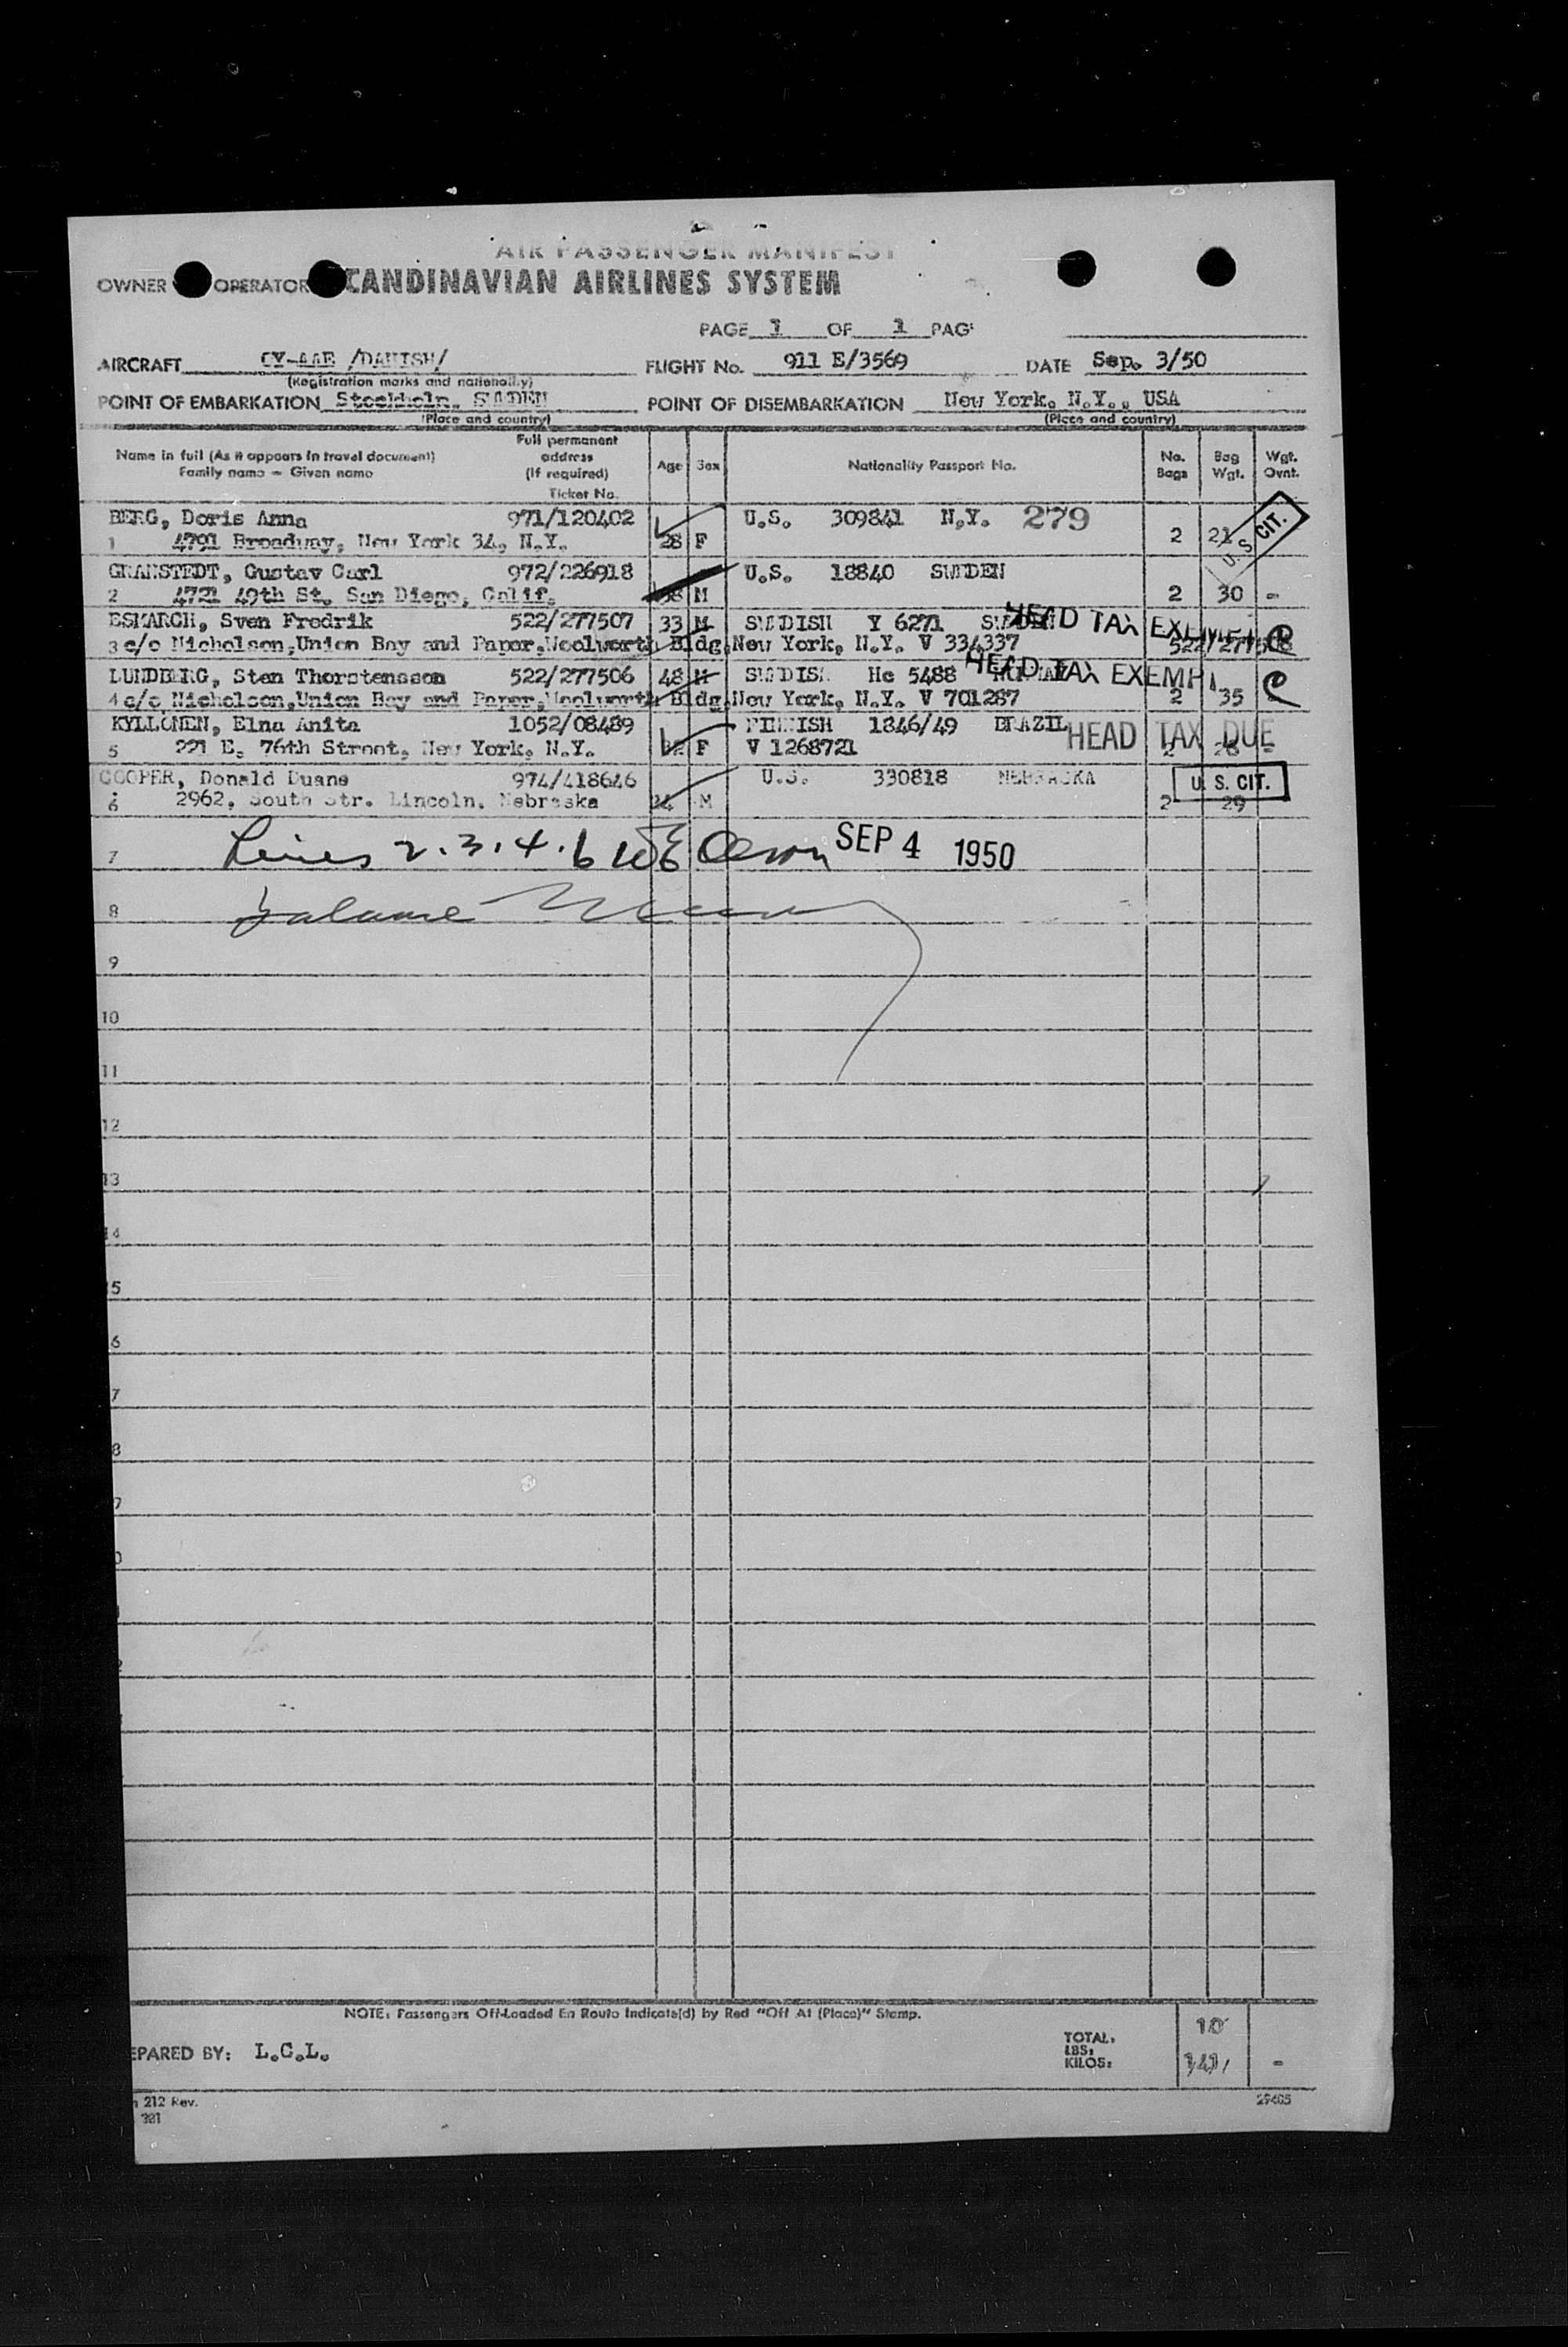 AIR PASSENGER MANIFEST
OWNER OPERATOR CANDINAVIAN AIRLINES SYSTEM
PAGE 1 OF 1 PAG
AIRCRAFT /DANISH/ FLIGHT No. 911 E/3569 DATE Sep. 3/50
(Registration marks and nationality)
POINT OF EMBARKATION Stockholm. SWEDEN POINT OF DISEMBARKATION New York. N.Y., USA
(Place and country) (Place and country)
Name in full (As it appears in travel document) Family name - Given name
Full permanent address (If required) Ticket No.
Age Sex Nationality Passport No. No. Bags Bag Wgt. Wgt. Ovnt.
BERG, Doris Anna 971/120402 U.S. 309841 N.Y. 279
1 4791 Broadway, New York 34, N.Y. 28 F 2 21 U.S CIT.
GRANSTEDT, Gustav Carl 972/226918 U.S. 18840 SWEDEN
2 4721 49th St. San Diego, Calif. M 2 30 -
ESKARCH, Sven Fredrik 522/277507 33 M SWEDISH Y 6271 HEAD TAX EXEMPT
3 c/o Nicholson,Union Bay and Paper,Woolworth Bldg,New York, N.Y. V 334337 522/277508
LUNDBERG, Sten Thorstensson 522/277506 48 M SWEDISH He 5488 HEAD TAX EXEMP
4 c/o Nicholson,Union Bay and Paper,Woolworth Bldg,New York, N.Y. V 701287 2 35
KYLLONEN, Elna Anita 1052/08489 FINNISH 1846/49 BRAZIL HEAD TAX DUE
5 221 E. 76th Street, New York, N.Y. F V 1268721
COOPER, Donald Duane 974/418646 U.S. 330818 NEBRASKA U.S. CIT.
6 2962, South Str. Lincoln. Nebraska 24 M 2 29
7 Lines 2.3.4.6 Olson SEP 4 1950
8 Balance
9
10
11
12
13
14
5
6
7
8
NOTE: Passengers Off-Loaded En Route Indicate(d) by Red "Off At (Place)" Stamp.
EPARED BY: L.C.L. TOTAL: 10
LBS:
KILOS: 141 -
212 Rev.
301